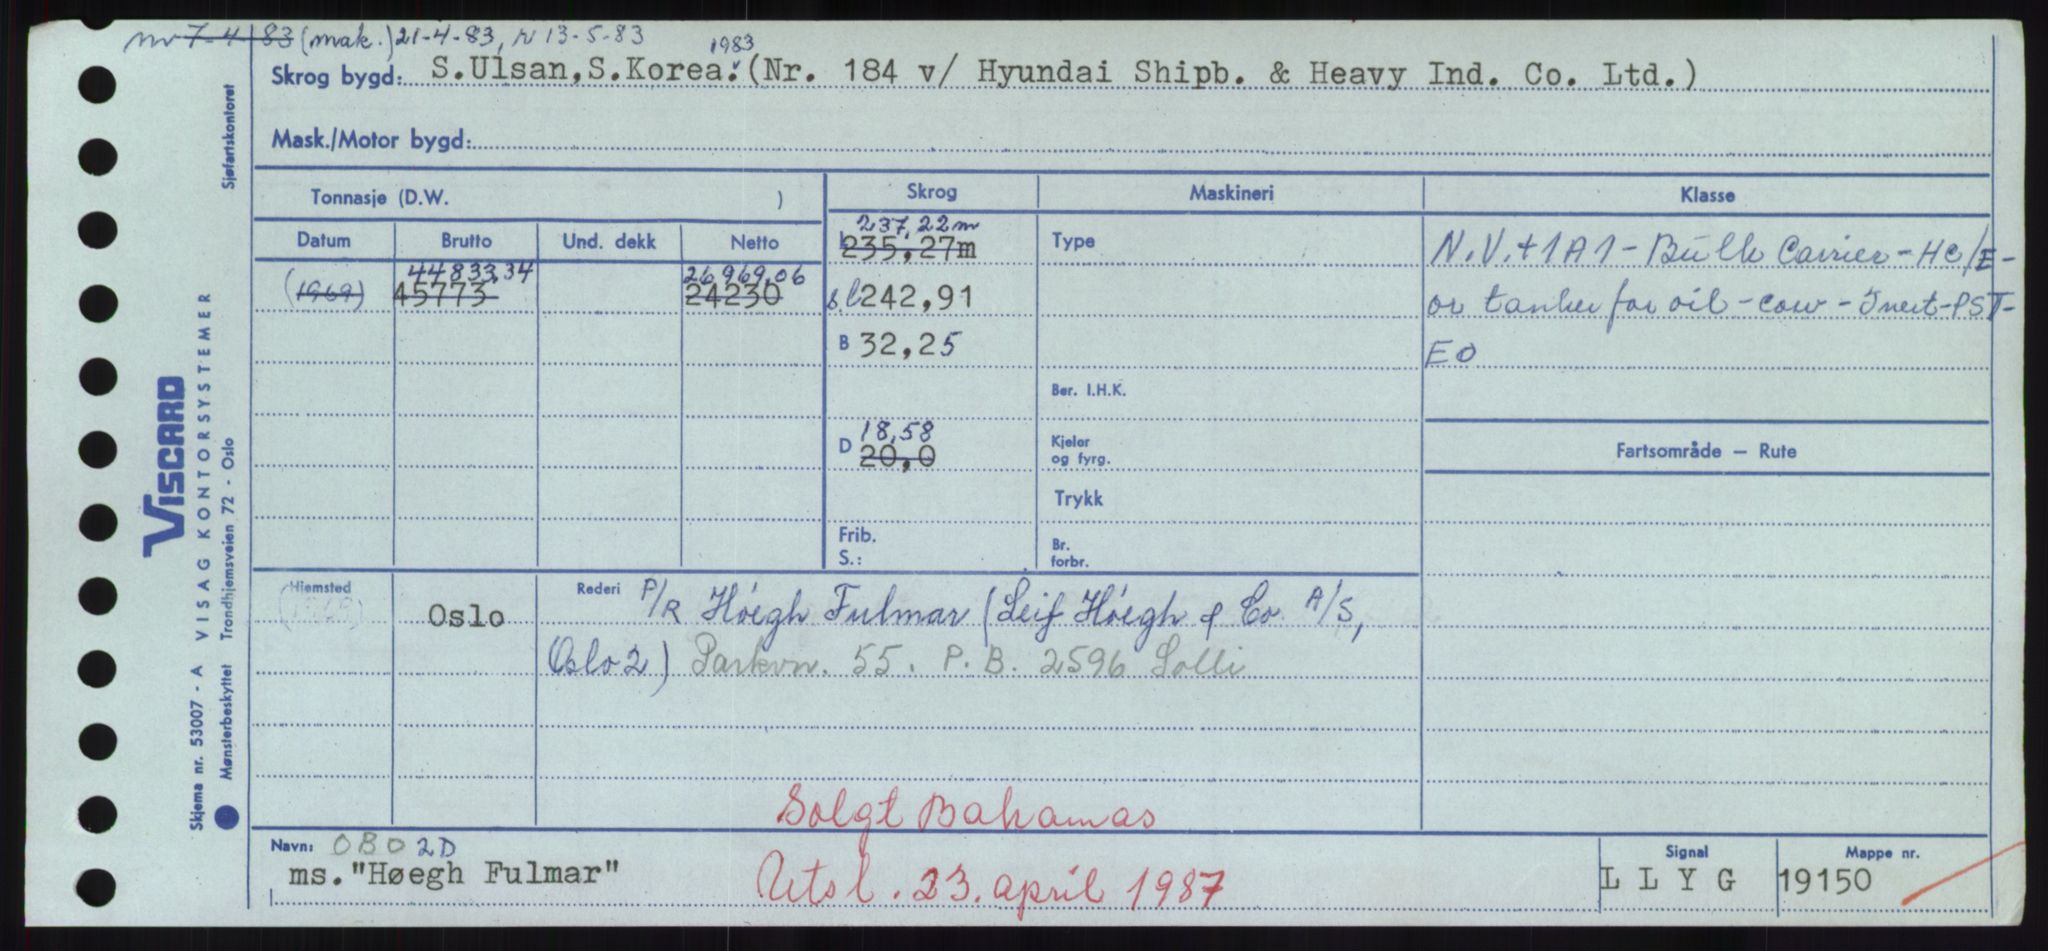 nv 7-4-83 (mak.) 21-4-83, r 13-5-83
1983
Skrog bygd: S.Ulsan,S.Korea. (Nr. 184 v/ Hyundai Shipb. & Heavy Ind. Co. Ltd.)
Mask./Motor bygd:
Tonnasje (D.W. )
Skrog Maskineri Klasse
Datum Brutto Und. dekk Netto
(1969) 44833,34 26969,06
45773 24230
237,22m
L 235,27m
s.l 242,91
B 32,25
18,58
D 20,0
Frib.
S.:
Type
Ber. I.H.K.
Kjeler
og fyrg.
Trykk
Br.
forbr.
N.V.+1A1 - Bulk Carrier - HC/E -
or tanker for oil - cow - Inert - PST -
EO
Fartsområde — Rute
Hjemsted
(1969)
Oslo
Rederi P/R Höegh Fulmar (Leif Höegh & Co A/S,
Oslo 2) Parkvn. 55. P.B. 2596 Solli
Solgt Bahamas
Navn: OBO 2D
ms."Høegh Fulmar"
Utsl. 23. april 1987
Signal
L L Y G
Mappe nr.
19150
Sjøfartskontoret
VISCARD
VISAG KONTORSYSTEMER
Trondhjemsveien 72 - Oslo
Skjema nr. 53007 - A
Mønsterbeskyttet